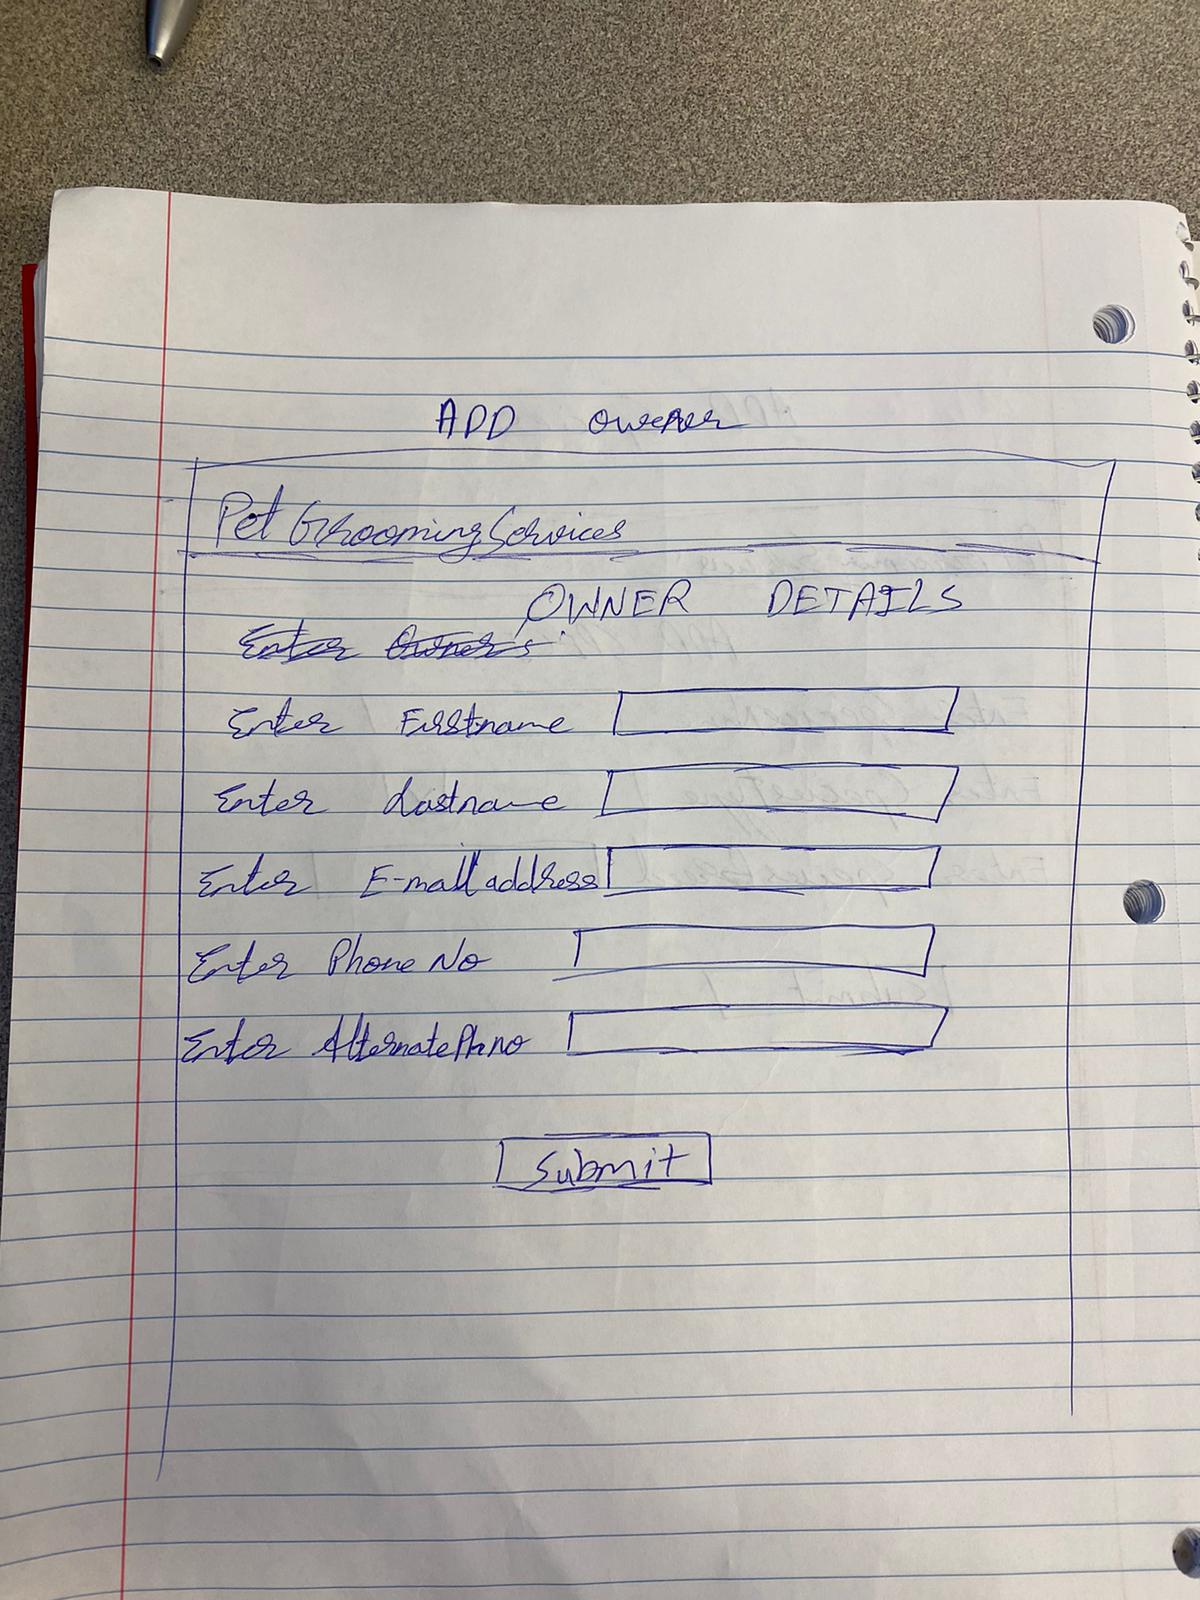 ADD owner
Pet Grooming Services
OWNER DETAILS
Enter Owner's
Enter Firstname
Enter Lastname
Enter E-mail address
Enter Phone No
Enter Alternate Ph.no
Submit